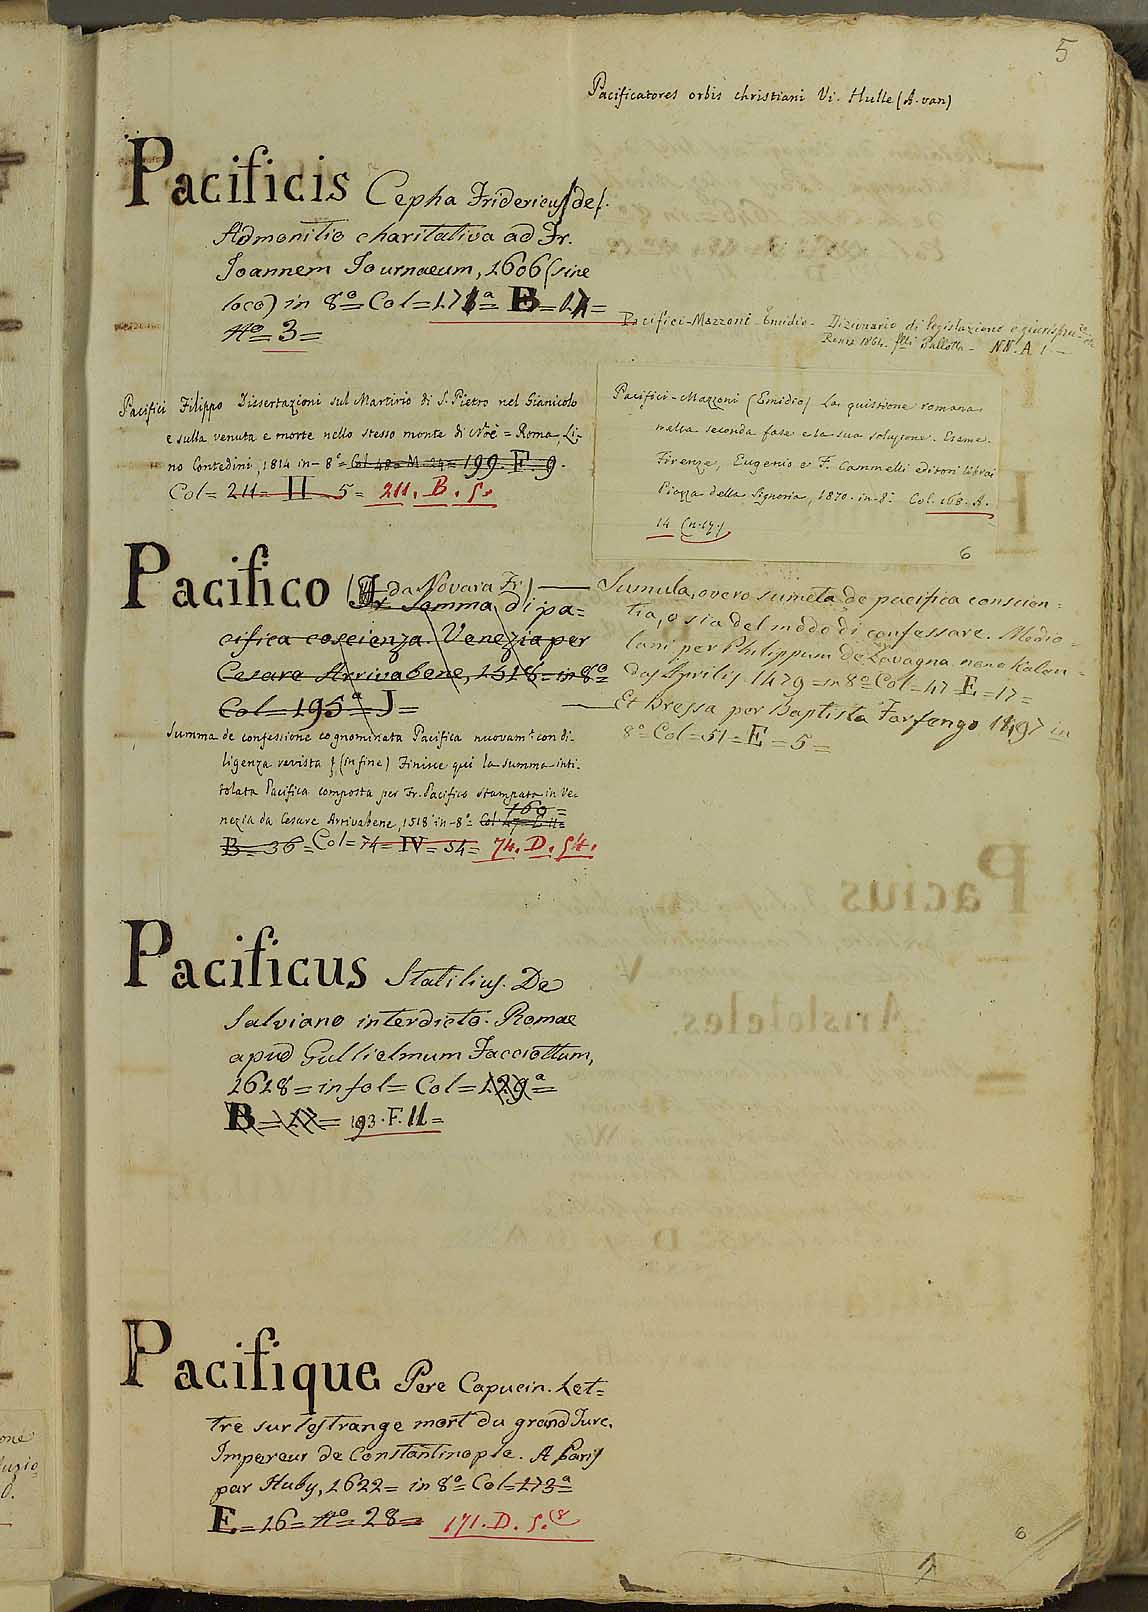 5
Pacificatores orbis christiani Vi. Hulle (A. van)
Pacificis Cepha Fridericus (de).
Admonitio charitativa ad Fr.
Joannem Tournaeum, 1606 (sine
loco) in 8º Col=171ª B=17=
Nº 3=
Pacifici-Mazzoni Emidio- Dizionario di legislazione e giurispru
Roma 1864. flli Pallotta - NN. A 1 -
Pacifici Filippo Dissertazioni sul Martirio di S. Pietro nel Gianicolo
e sulla venuta e morte nello stesso monte di Noè = Roma, Li-
no Contedini, 1814 in-8º= Col 48=M 24= 199. F. 9.
Col= 211= II 5= 211. B. 5.
Pacifici-Mazzoni (Emidio) La quistione romana
nella seconda fase e la sua soluzione. Esame.
Firenze, Eugenio e F. Cammelli editori librai
Piazza della Signoria, 1870. in-8º Col. 168. A.
14 (n. 17.)
6
Pacifico (da Novara Fr.)
Fr. Somma di pa=
cifica coscienza. Venezia per
Cesare Arrivabene, 1518=in 8º=
Col=195ª J=
Sumula, overo sumeta de pacifica conscien=
tia, o sia del modo di confessare. Medio=
lani per Philippum de Lavagna nono Kalen=
das Aprilis 1479=in 8º Col=47 E=17=
Et Bressa per Baptista Farfengo 1497 in
8º Col=51=E=5=
Summa de confessione cognominata Pacifica nuovamte con di-
ligenza revista (in fine) Finisce qui la summa inti-
tolata Pacifica composta per Fr. Pacifico stampata in Ve-
nezia da Cesare Arrivabene, 1518 in-8º= Col 47= E 11=
169=
B= 36=Col=74=IV=54= 74. D. 54.
Pacificus Statilius. De
Salviano interdicto. Romae
apud Gullielmum Facciottum,
1618=in fol= Col=129ª=
B=17= 193. F. 11=
Pacifique Pere Capucin. Let=
tre sur lestrange mort du grand Turc.
Impereur de Constantinople. A Paris
par Huby, 1622= in 8º Col=173ª
E=16=Nº 28= 171. D. 5. (8
6